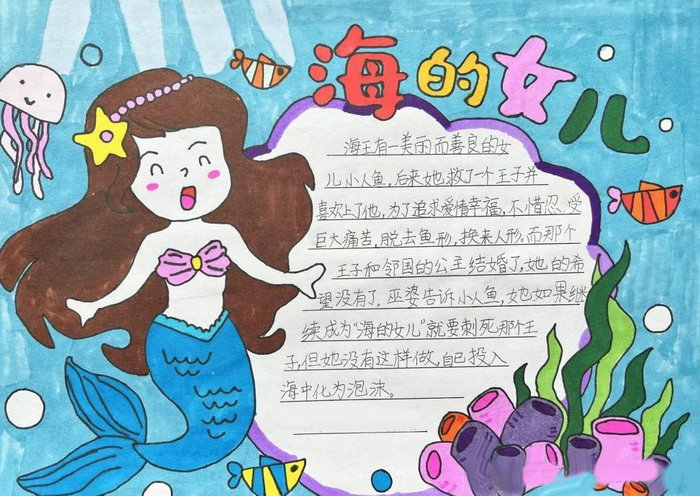 海的女儿
海王有一美丽而善良的女
儿小人鱼,后来她救了一个王子并
喜欢上了他,为了追求爱情幸福,不惜忍受
巨大痛苦,脱去鱼形,换来人形,而那个
王子和邻国的公主结婚了,她的希
望没有了,巫婆告诉小人鱼,她如果继
续成为“海的女儿”就要刺死那个王
子,但她没有这样做,自已投入
海中化为泡沫。